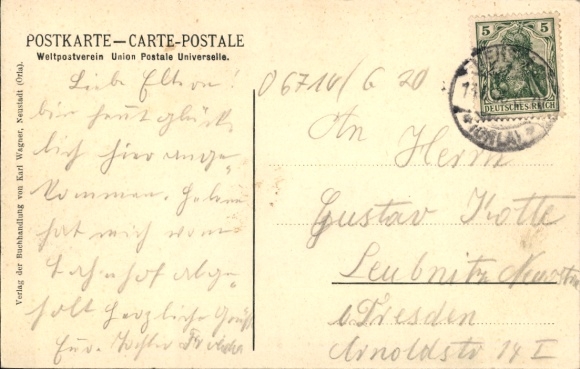 POSTKARTE—CARTE-POSTALE
Weltpostverein Union Postale Universelle.
Verlag der Buchhandlung von Karl Wagner, Neustadt (Orla).
Liebe Eltern!
bin heut glück-
lich hier ange-
kommen.
hat mich vom
Bahnhof abge-
holt Herzliche Grüße
Eure Tochter Frieda
06714/G 20
5 5
DEUTSCHES REICH
(ORLA)
An Herrn
Gustav Kotte
Leubnitz Neuostra
b/Dresden
Arnoldstr 14 I